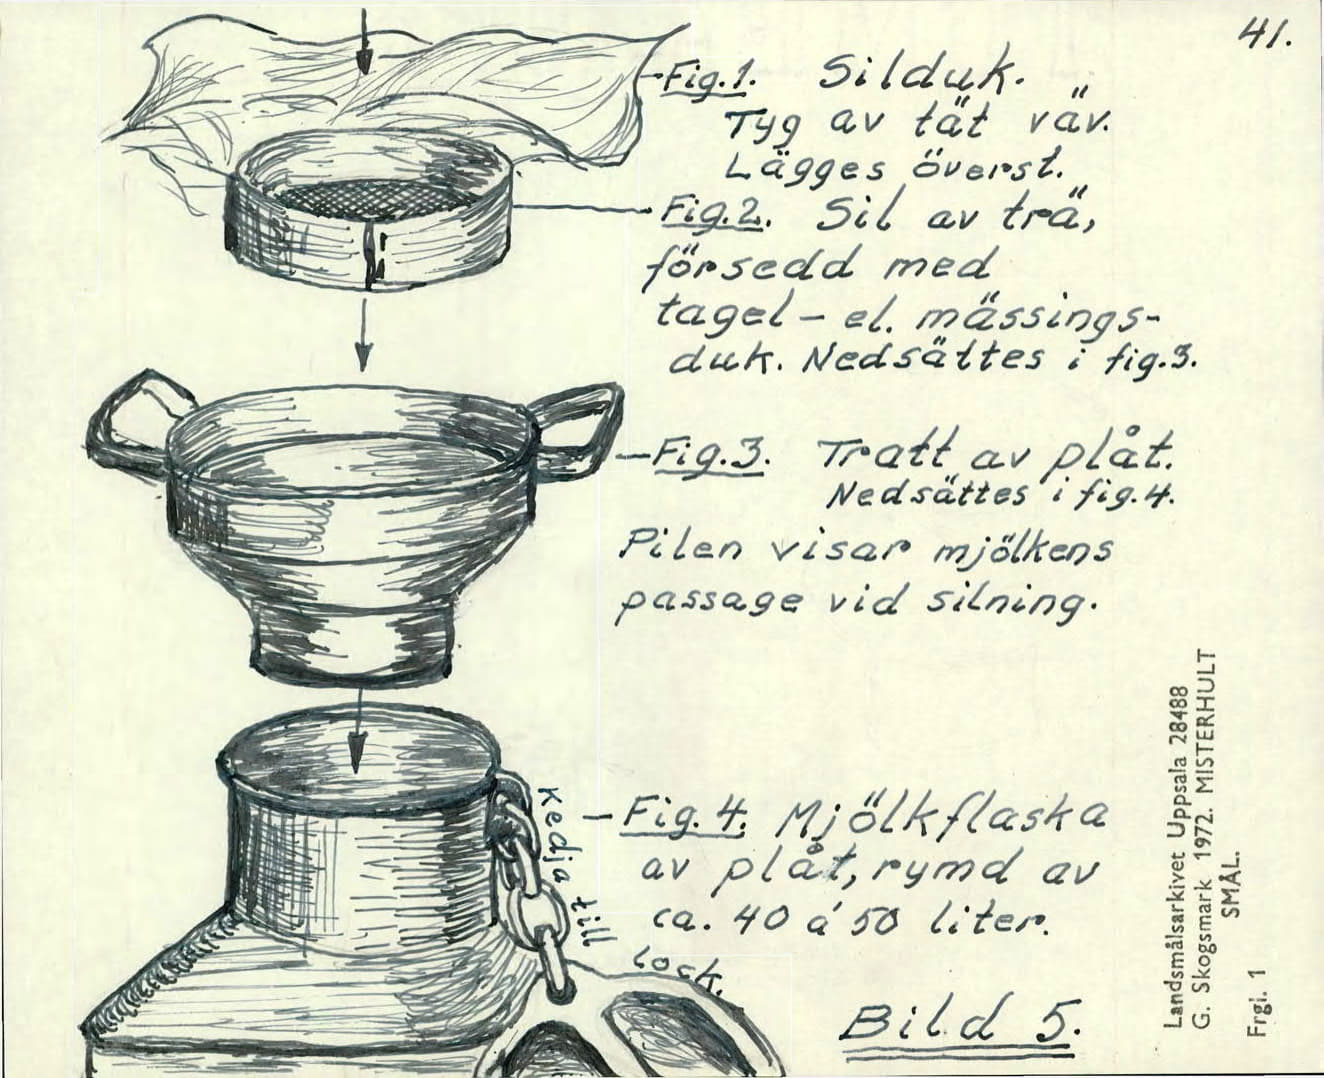 41.
Fig.1. Silduk.
Tyg av tät väv.
Lägges överst.
Fig.2. Sil av trä,
försedd med
tagel- el. mässings-
duk. Nedsättes i fig.3.
Fig.3. Tratt av plåt.
Nedsättes i fig.4.
Pilen visar mjölkens
passage vid silning.
Fig.4. Mjölkflaska
av plåt, rymd av
ca. 40 á 50 liter.
Kedja till
lock.
Bild 5.
Landsmålsarkivet Uppsala 28488
G. Skogsmark 1972. MISTERHULT
SMÅL.
Frgl. 1